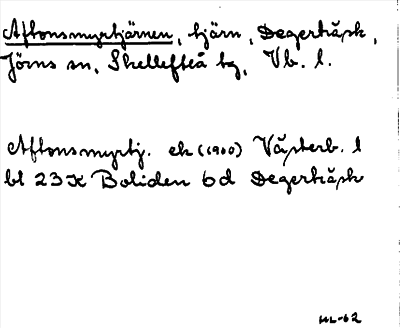 Aftonsmyrtjärnen, tjärn, Degerträsk,
Jörns sn, Skellefteå tg, Vb. l.
Aftonsmyrtj. ek (1900) Västerb. l
bl 23 K Boliden 6 d Degerträsk
HL-62